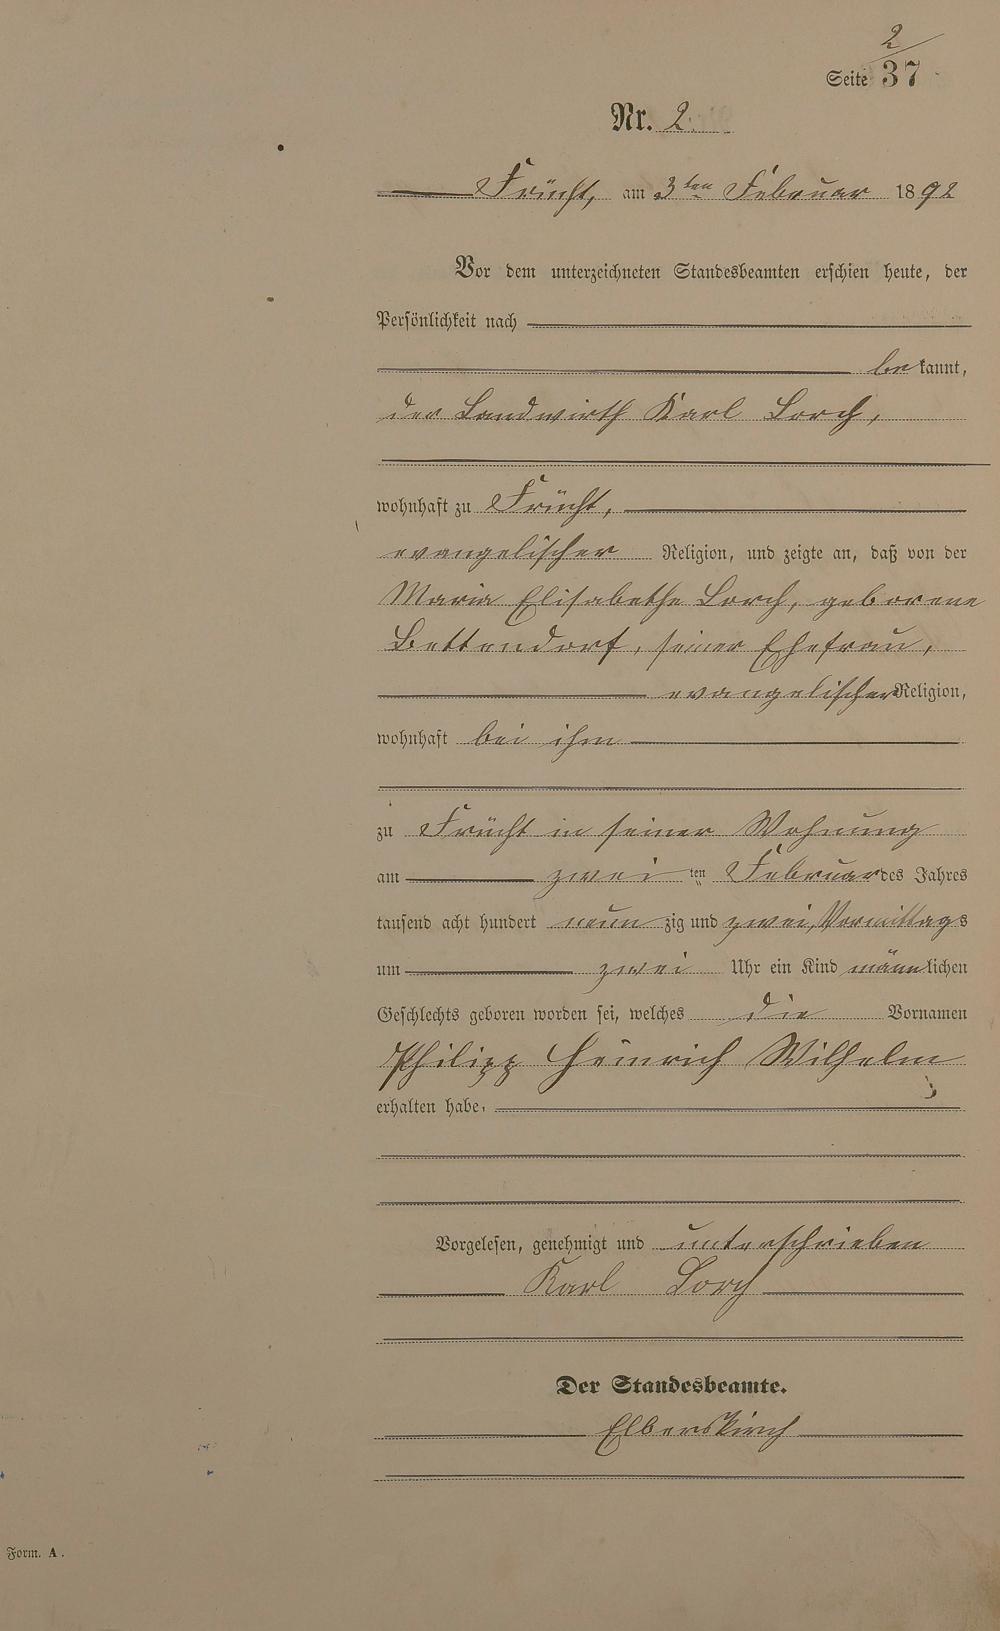 2
Seite 37
Nr. 2.
Frücht, am 3ten Februar 1892
Vor dem unterzeichneten Standesbeamten erschien heute, der
Persönlichkeit nach
bekannt,
der Landwirth Karl Lorch,
wohnhaft zu Frücht,
evangelischer Religion, und zeigte an, daß von der
Maria Elisabethe Lorch, geborene
Bettendorf, seiner Ehefrau,
evangelischer Religion,
wohnhaft bei ihm
zu Frücht in seiner Wohnung
am zweiten Februar des Jahres
tausend acht hundert neunzig und zwei, Vormittags
um zwei Uhr ein Kind männlichen
Geschlechts geboren worden sei, welches die Vornamen
Philipp Heinrich Wilhelm
erhalten habe.
Vorgelesen, genehmigt und unterschrieben
Karl Lorch
Der Standesbeamte.
Elberskirch
Form. A.